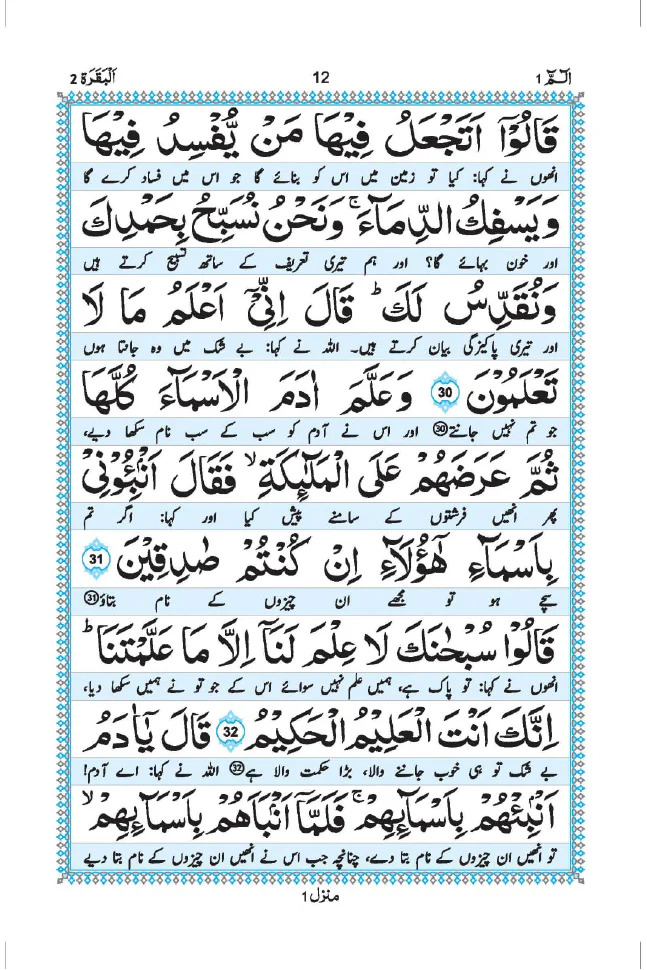 الٓمّٓ 1 12 اَلْبَقَرَة 2
قَالُوْٓا اَتَجْعَلُ فِيْهَا مَنْ يُّفْسِدُ فِيْهَا
انھوں نے کہا: کیا تو زمین میں اس کو بنائے گا جو اس میں فساد کرے گا
وَيَسْفِكُ الدِّمَآءَ ۚ وَنَحْنُ نُسَبِّحُ بِحَمْدِكَ
اور خون بہائے گا؟ اور ہم تیری تعریف کے ساتھ تسبیح کرتے ہیں
وَنُقَدِّسُ لَكَ ؕ قَالَ اِنِّيْٓ اَعْلَمُ مَا لَا
اور تیری پاکیزگی بیان کرتے ہیں۔ اللہ نے کہا: بے شک میں وہ جانتا ہوں
تَعْلَمُوْنَ 30 وَعَلَّمَ اٰدَمَ الْاَسْمَآءَ كُلَّهَا
جو تم نہیں جانتے 30 اور اس نے آدم کو سب کے سب نام سکھا دیے،
ثُمَّ عَرَضَهُمْ عَلَى الْمَلٰٓئِكَةِ ۙ فَقَالَ اَنْۢبِـُٔوْنِيْ
پھر انھیں فرشتوں کے سامنے پیش کیا اور کہا: اگر تم
بِاَسْمَآءِ هٰٓؤُلَآءِ اِنْ كُنْتُمْ صٰدِقِيْنَ 31
سچے ہو تو مجھے ان چیزوں کے نام بتاؤ 31
قَالُوْا سُبْحٰنَكَ لَا عِلْمَ لَنَآ اِلَّا مَا عَلَّمْتَنَا ؕ
انھوں نے کہا: تو پاک ہے، ہمیں علم نہیں سوائے اس کے جو تو نے ہمیں سکھا دیا،
اِنَّكَ اَنْتَ الْعَلِيْمُ الْحَكِيْمُ 32 قَالَ يٰٓاٰدَمُ
بے شک تو ہی خوب جاننے والا، بڑا حکمت والا ہے 32 اللہ نے کہا: اے آدم!
اَنْۢبِئْهُمْ بِاَسْمَآئِهِمْ ۚ فَلَمَّآ اَنْۢبَاَهُمْ بِاَسْمَآئِهِمْ ۙ
تو انھیں ان چیزوں کے نام بتا دے، چنانچہ جب اس نے انھیں ان چیزوں کے نام بتا دیے
منزل 1